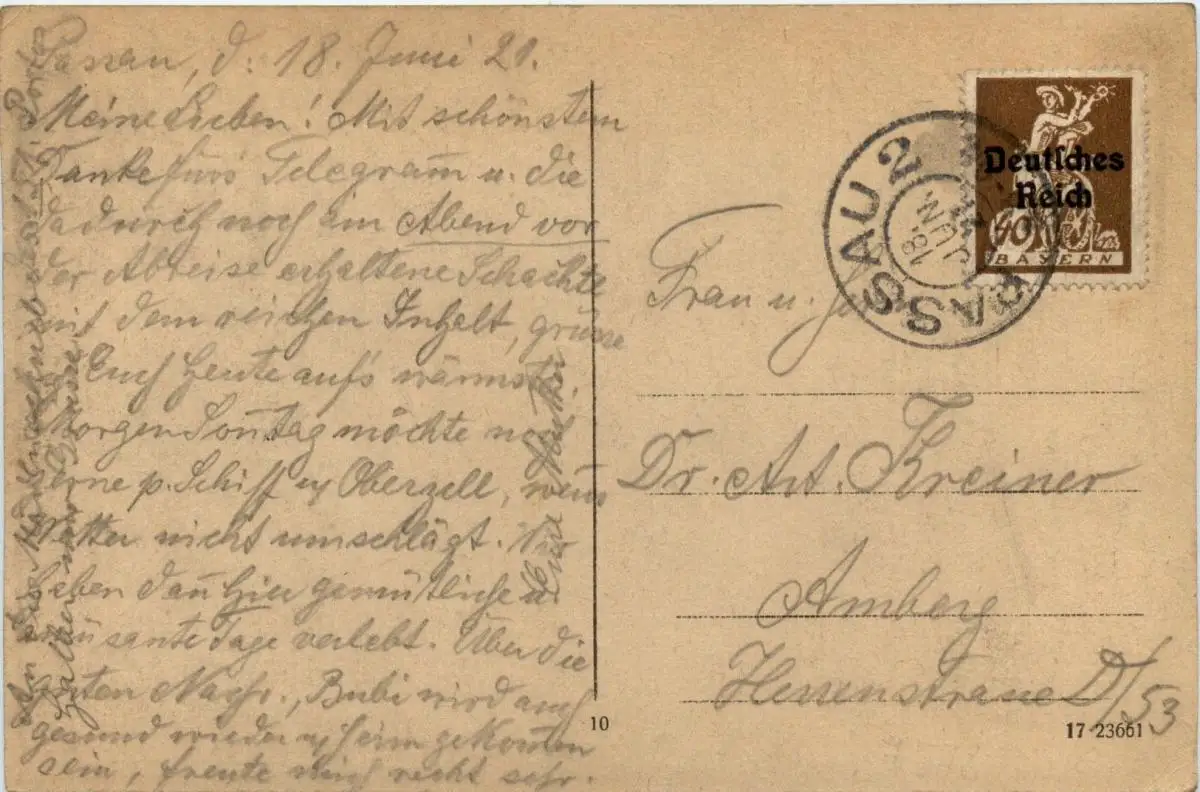 Passau, d. 18. Juni 21.
Meine Lieben! Mit schönstem
Danke fürs Telegram̄ u. die
dadurch noch am Abend vor
der Abreise erhaltene Schachtel
mit dem reichen Inhalt, grüsse
Euch heute aufs wärmste.
Morgen Son̄tag möchte noch
gerne p. Schiff n/ Oberzell, wen̄s
Wetter nicht umschlägt. Wir
haben dan̄ hier gemütliche u.
Tage verlebt. Über die
guten Nachr., Bubi wird auch
gesund wieder n/ heim gekom̄en
sein, freute mich recht sehr.
Eure Mutter
Frau u.
Dr. Art. Kreiner
Amberg
Herrenstrasse D/53
Deutsches
Reich
40
BAYERN
PASSAU 2
18. JUN
10
17-23661